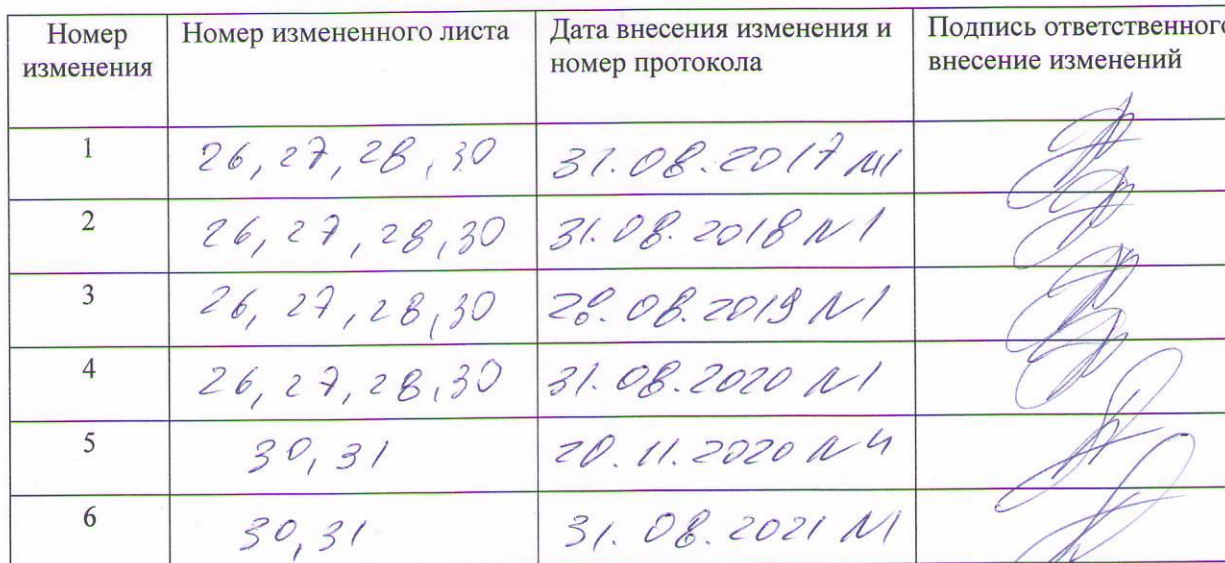 Номер изменения Номер измененного листа Дата внесения изменения и номер протокола Подпись ответственного внесение изменений
1 26, 27, 28, 30 31.08.2017 №1
2 26, 27, 28, 30 31.08.2018 №1
3 26, 27, 28, 30 28.08.2019 №1
4 26, 27, 28, 30 31.08.2020 №1
5 30, 31 20.11.2020 №4
6 30, 31 31.08.2021 №1